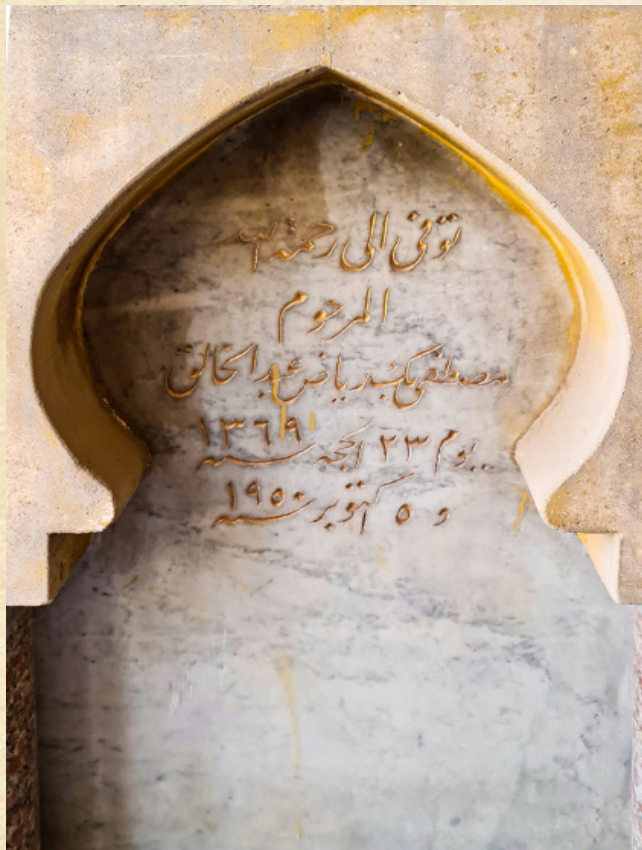 توفى الى رحمة الله
المرحوم
مصطفى بك رياض عبد الخالق
يوم ٢٣ الحجه سنه ١٣٦٩
و ٥ اكتوبر سنه ١٩٥٠